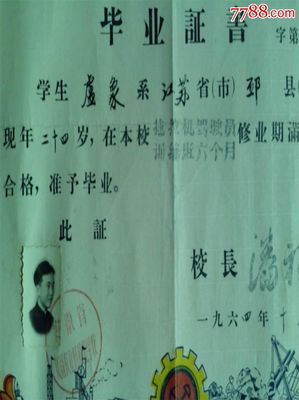 7788.com
毕业証書
字第
学生 盧象 系 江苏省(市) 邳 县(
现年二十四岁,在本校 拖拉机驾驶员训练班六个月 修业期满
合格,准予毕业。
此証
校長 潘
一九六四年十